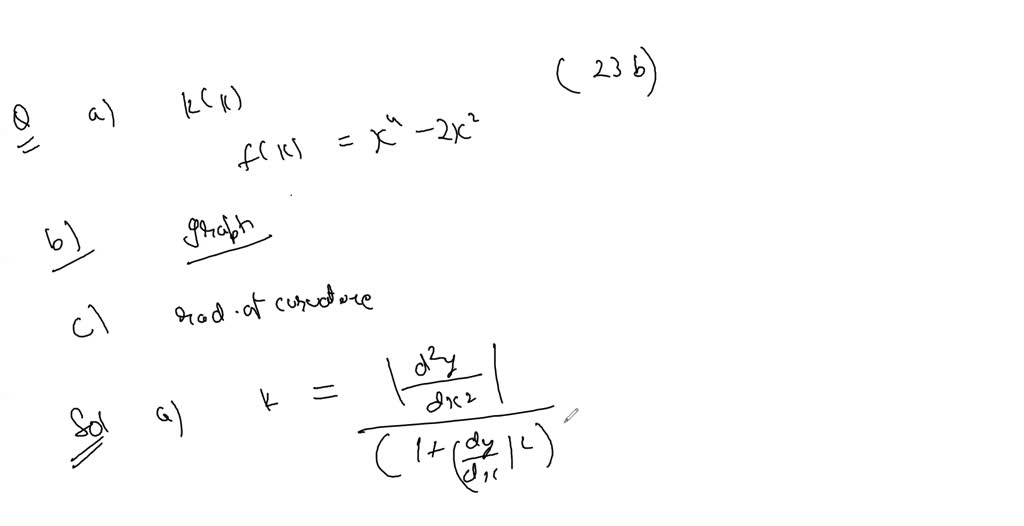 (23 b)
Q a) k(x)
f(x) = x⁴ - 2x²
b) graph
c) rad. of curvature
Sol a) k = |d²y/dx²| / (1 + (dy/dx)²)